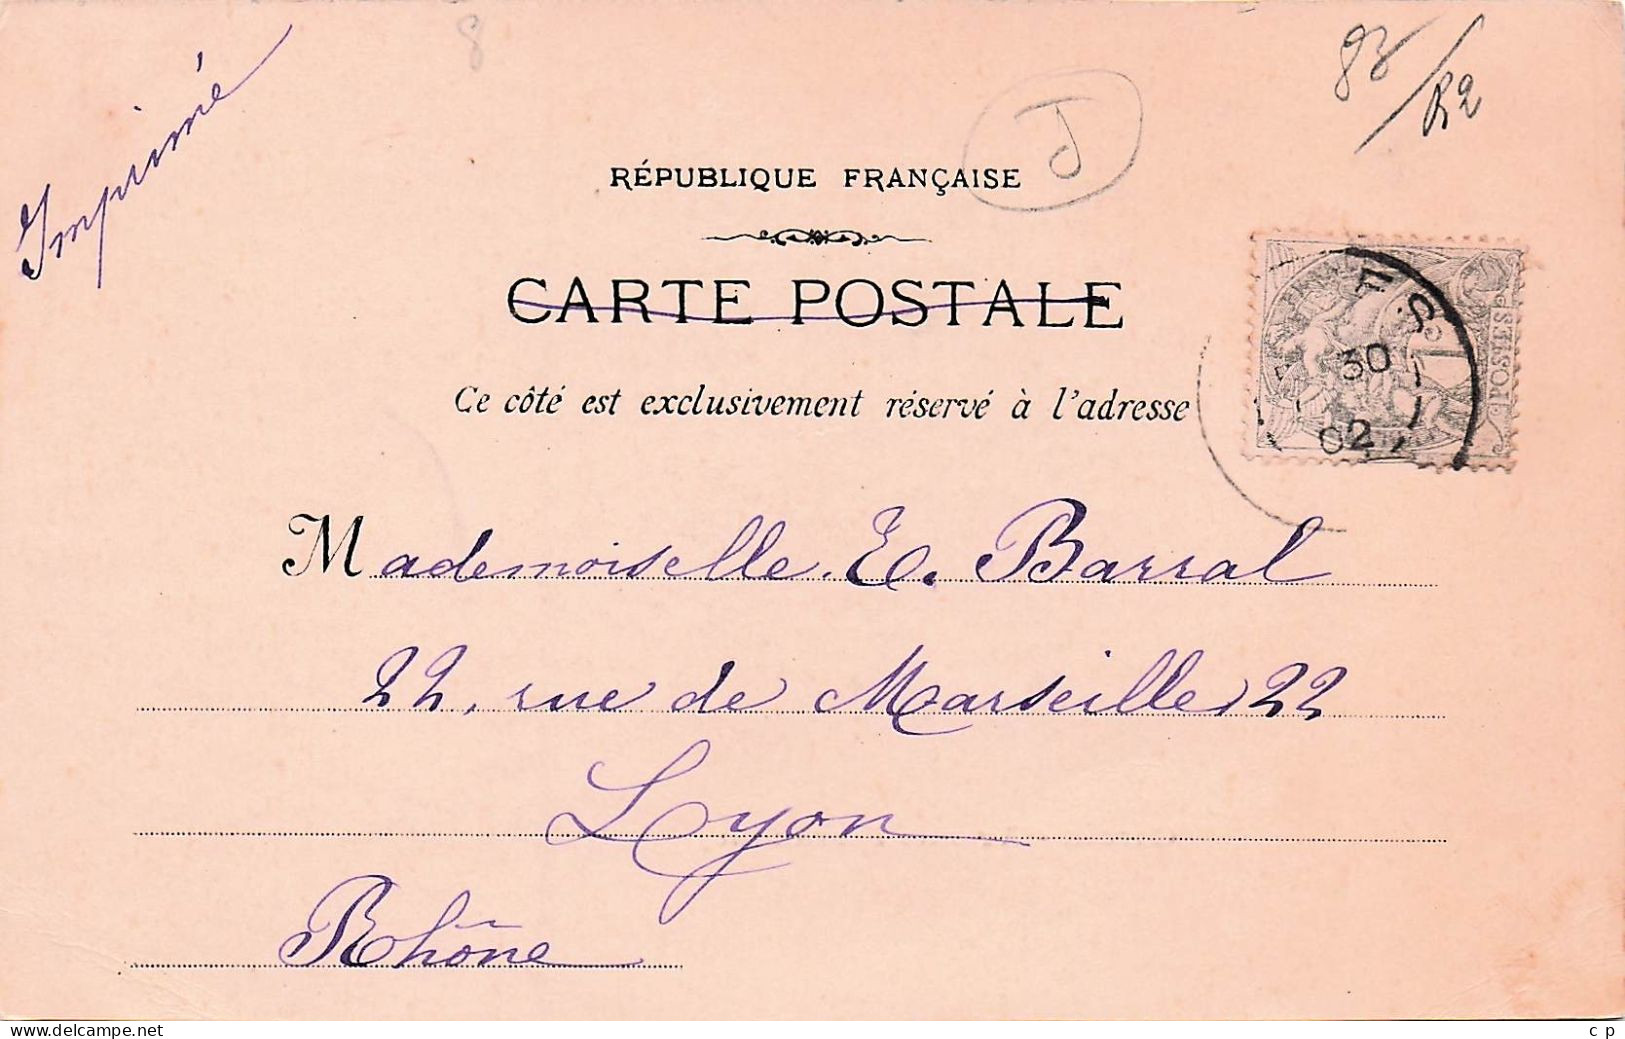 Imprimé
8
J
RÉPUBLIQUE FRANÇAISE
CARTE POSTALE
Ce côté est exclusivement réservé à l'adresse
POSTES
1
30
02
Mademoiselle E. Barral
22, rue de Marseille 22
Lyon
Rhône
www.delcampe.net
c p